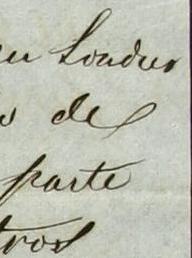 en Londres
de
parte
tros